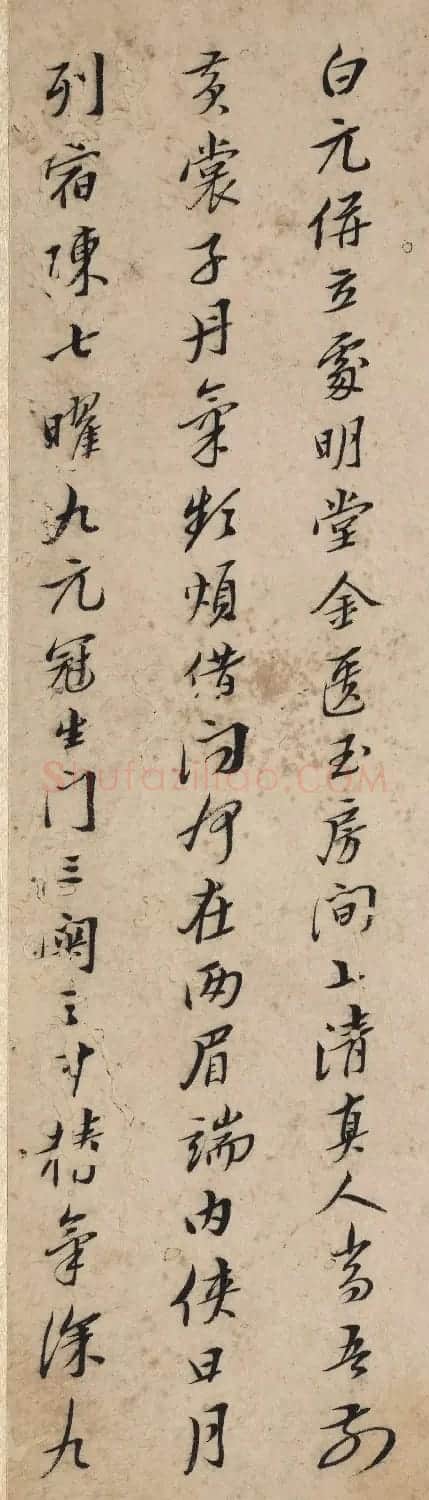 白元併立處明堂金匱玉房間上清真人當吾前
黃裳子丹氣頻煩借問何在兩眉端內俠日月
列宿陳七曜九元冠生門三關之中精氣深九
Shufaziliao.COM